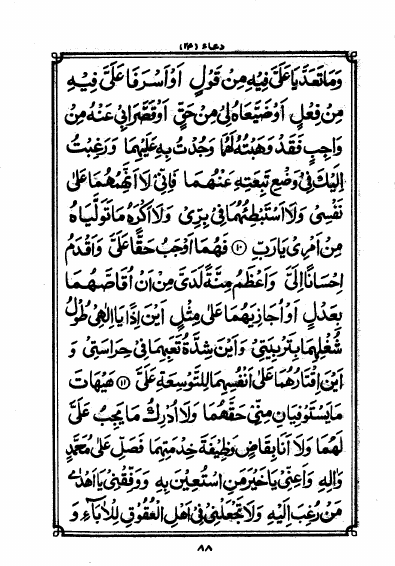 دعاء (۲۴)
وَمَا تَعَدَّيَا عَلَىَّ فِيهِ مِنْ قَوْلٍ أَوْ أَسْرَفَا عَلَىَّ فِيهِ
مِنْ فِعْلٍ أَوْ ضَيَّعَاهُ لِى مِنْ حَقٍّ أَوْ قَصَّرَا بِى عَنْهُ مِنْ
وَاجِبٍ فَقَدْ وَهَبْتُهُ لَهُمَا وَجُدْتُ بِهِ عَلَيْهِمَا وَرَغِبْتُ
إِلَيْكَ فِى وَضْعِ تَبِعَتِهِ عَنْهُمَا فَإِنِّى لَا أَتَّهِمُهُمَا عَلَى
نَفْسِى وَلَا أَسْتَبْطِئُهُمَا فِى بِرِّى وَلَا أَكْرَهُ مَا تَوَلَّيَاهُ
مِنْ أَمْرِى يَا رَبِّ ⑩ فَهُمَا أَوْجَبُ حَقًّا عَلَىَّ وَأَقْدَمُ
إِحْسَانًا إِلَىَّ وَأَعْظَمُ مِنَّةً لَدَىَّ مِنْ أَنْ أُقَاصَّهُمَا
بِعَدْلٍ أَوْ أُجَازِيَهُمَا عَلَى مِثْلٍ أَيْنَ إِذًا يَا إِلٰهِى طُولُ
شُغْلِهِمَا بِتَرْبِيَتِى وَأَيْنَ شِدَّةُ تَعَبِهِمَا فِى حِرَاسَتِى وَ
أَيْنَ إِقْتَارُهُمَا عَلَى أَنْفُسِهِمَا لِلتَّوْسِعَةِ عَلَىَّ ⑪ هَيْهَاتَ
مَا يَسْتَوْفِيَانِ مِنِّى حَقَّهُمَا وَلَا أُدْرِكُ مَا يَجِبُ عَلَىَّ
لَهُمَا وَلَا أَنَا بِقَاضٍ وَظِيفَةَ خِدْمَتِهِمَا فَصَلِّ عَلَى مُحَمَّدٍ
وَاٰلِهِ وَأَعِنِّى يَا خَيْرَ مَنِ اسْتُعِينَ بِهِ وَوَفِّقْنِى يَا أَهْدٰى
مَنْ رُغِبَ إِلَيْهِ وَلَا تَجْعَلْنِى فِى أَهْلِ الْعُقُوقِ لِلْاٰبَاءِ وَ
۸۸